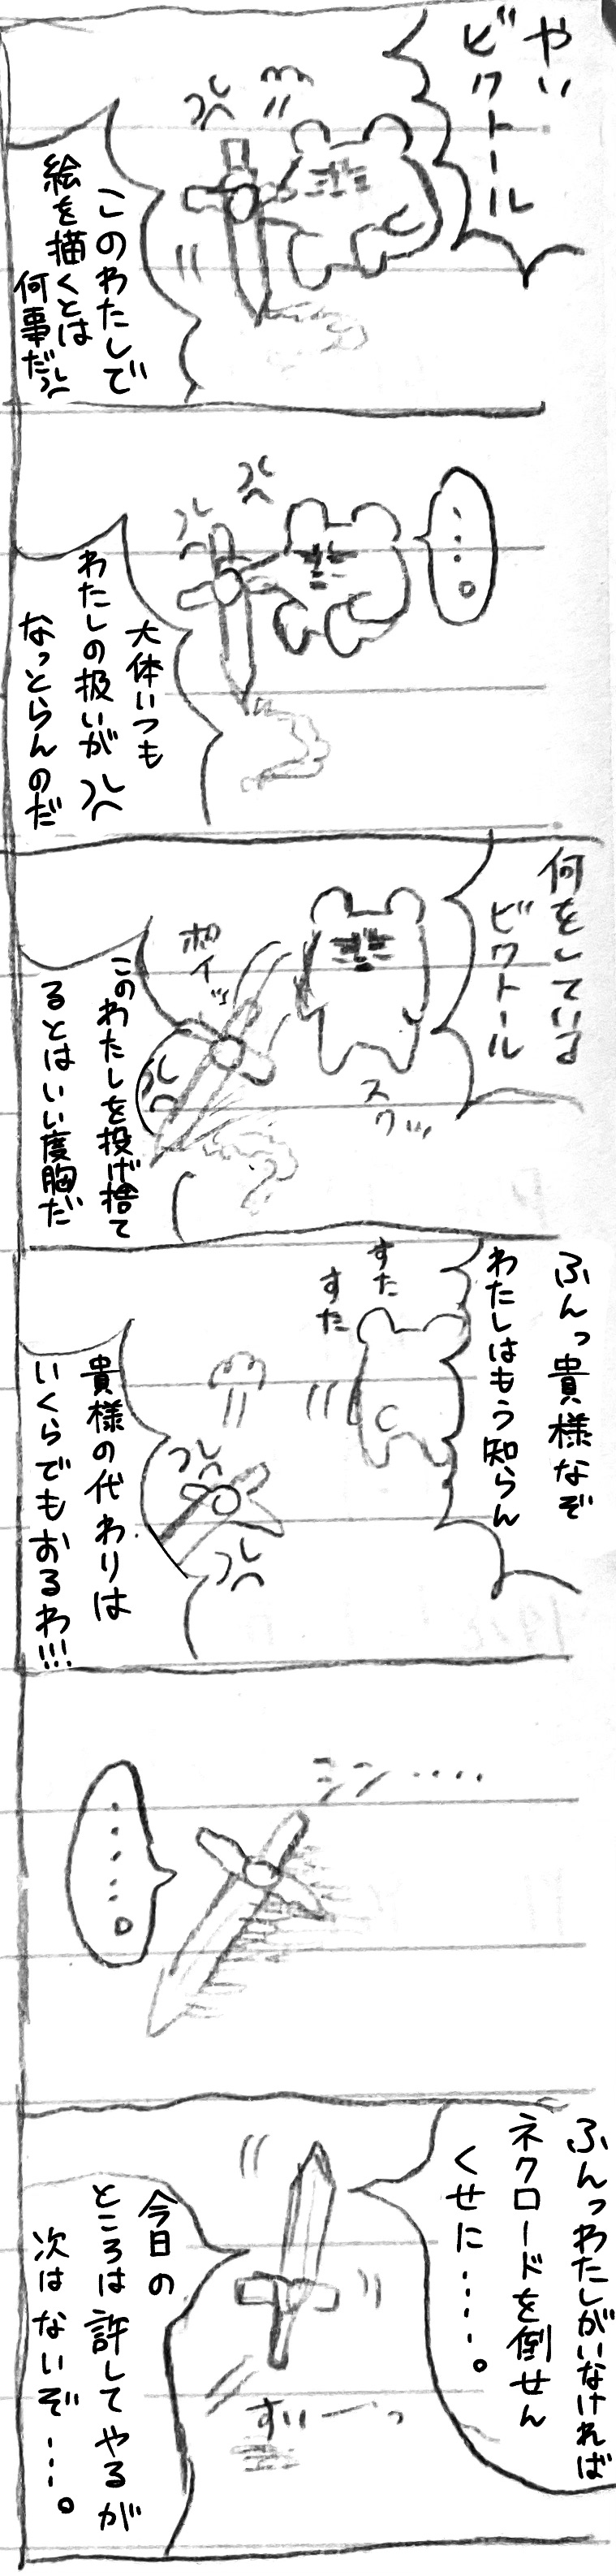 やい
ビクトール
このわたしで
絵を描くとは
何事だ
・・・。
大体いつも
わたしの扱いが
なっとらんのだ
何をしている
ビクトール
ポイッ
スクッ
このわたしを投げ捨て
るとはいい度胸だ
ふんっ貴様なぞ
わたしはもう知らん
すた
すた
貴様の代わりは
いくらでもおるわ!!!
シン・・・・
・・・・・。
ふんっわたしがいなければ
ネクロードを倒せん
くせに・・・・。
今日の
ところは許してやるが
次はないぞ・・・。
すぃーっ